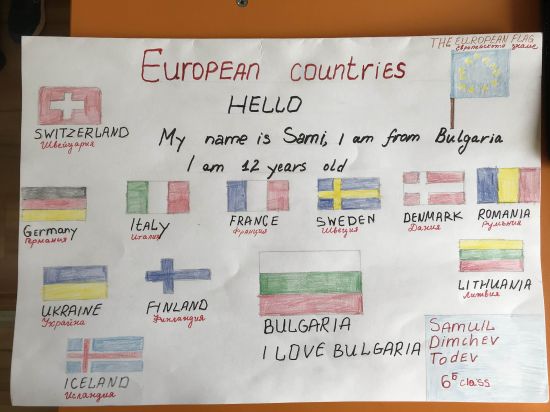 THE EUROPEAN FLAG
Европейското знаме
EUROPEAN COUNTRIES
HELLO
SWITZERLAND
Швейцария
My name is Sami, I am from Bulgaria
I am 12 years old
Germany
Германия
ITALY
Италия
FRANCE
Франция
SWEDEN
Швеция
DENMARK
Дания
ROMANIA
Румъния
UKRAINE
Украйна
FINLAND
Финландия
BULGARIA
I LOVE BULGARIA
LITHUANIA
Литвия
ICELAND
Исландия
Samuil
Dimchev
Todev
6Б class